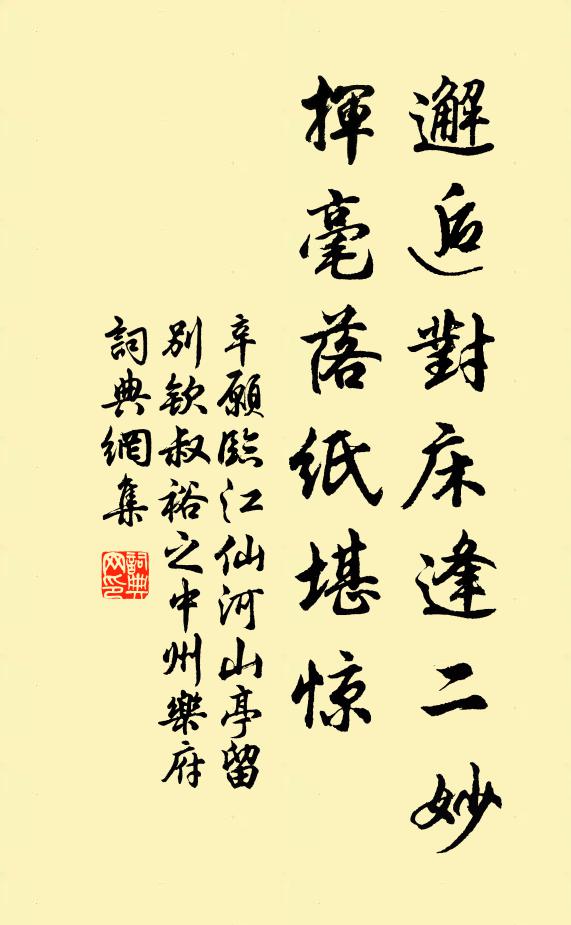 邂逅對床逢二妙
揮毫落紙堪惊
辛願臨江仙河山亭留
別欽叔裕之中州樂府
詞典網集
詞典網印